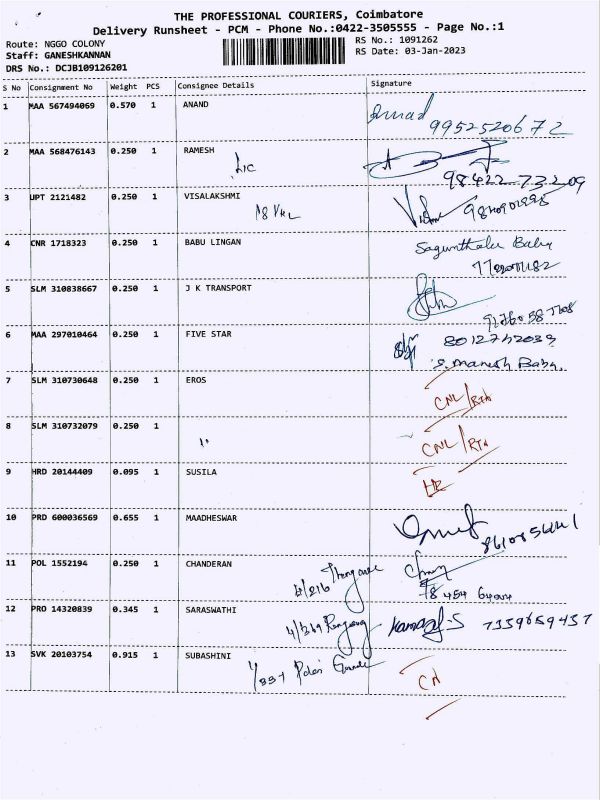 THE PROFESSIONAL COURIERS, Coimbatore
Delivery Runsheet - PCM - Phone No.:0422-3505555 - Page No.:1
Route: NGGO COLONY
Staff: GANESHKANNAN
DRS No.: DCJB109126201
RS No.: 1091262
RS Date: 03-Jan-2023
S No Consignment No Weight PCS Consignee Details Signature
1 MAA 567494069 0.570 1 ANAND
9952520672
2 MAA 568476143 0.250 1 RAMESH
LIC
98422 73209
3 UPT 2121482 0.250 1 VISALAKSHMI
4 CNR 1718323 0.250 1 BABU LINGAN
5 SLM 310838667 0.250 1 J K TRANSPORT
6 MAA 297010464 0.250 1 FIVE STAR
S. Manesh Babu.
7 SLM 310730648 0.250 1 EROS
CNL/RTN
8 SLM 310732079 0.250 1
"
CNL/RTN
9 HRD 20144409 0.095 1 SUSILA
10 PRD 600036569 0.655 1 MAADHESWAR
11 POL 1552194 0.250 1 CHANDERAN
12 PRO 14320839 0.345 1 SARASWATHI
4/369
7359659457
13 SVK 20103754 0.915 1 SUBASHINI